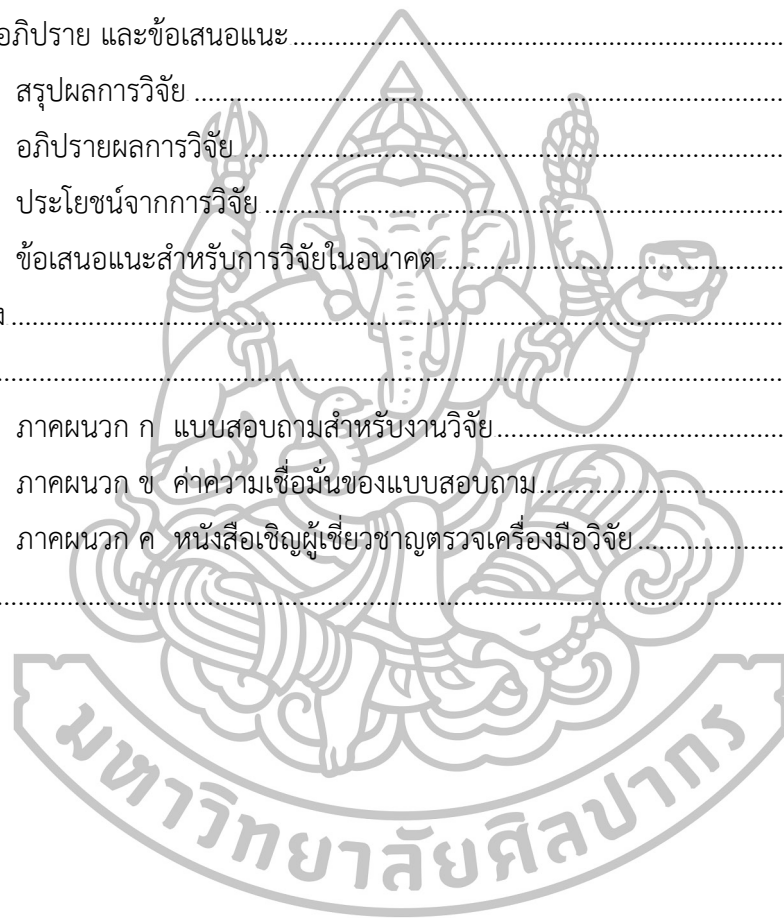 อภิปราย และข้อเสนอแนะ........................................................................
สรุปผลการวิจัย........................................................................
อภิปรายผลการวิจัย........................................................................
ประโยชน์จากการวิจัย........................................................................
ข้อเสนอแนะสำหรับการวิจัยในอนาคต........................................................................
ภาคผนวก ก แบบสอบถามสำหรับงานวิจัย........................................................................
ภาคผนวก ข ค่าความเชื่อมั่นของแบบสอบถาม........................................................................
ภาคผนวก ค หนังสือเชิญผู้เชี่ยวชาญตรวจเครื่องมือวิจัย........................................................................
มหาวิทยาลัยศิลปากร